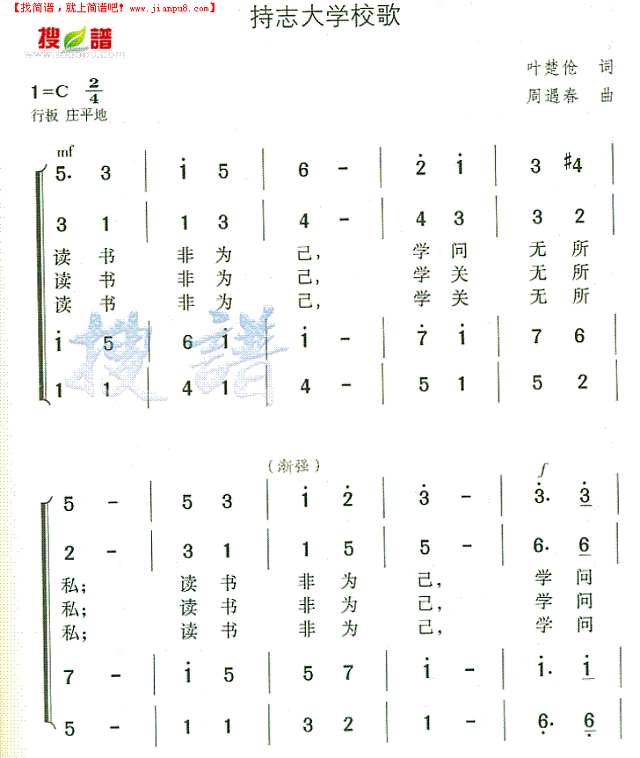 【找简谱，就上简谱吧！www.jianpu8.com】
持志大学校歌
搜谱
叶楚伧 词
1=C 2/4
周遇春 曲
行板 庄平地
mf
5. 3 | i 5 | 6 - | 2̇ i | 3 #4 |
3 1 | 1 3 | 4 - | 4 3 | 3 2 |
读 书 非 为 己， 学 问 无 所
读 书 非 为 己， 学 关 无 所
读 书 非 为 己， 学 关 无 所
i 5 | 6 i | i - | 7̇ i | 7 6 |
1 1 | 4 1 | 4 - | 5 1 | 5 2 |
搜谱
（渐强）
f
5 - | 5 3 | i 2̇ | 3̇ - | 3̇. 3̇ |
2 - | 3 1 | 1 5 | 5 - | 6. 6 |
私； 读 书 非 为 己， 学 问
私； 读 书 非 为 己， 学 问
私； 读 书 非 为 己， 学 问
7 - | i 5 | 5 7 | i - | i. i |
5 - | 1 1 | 3 2 | 1 - | 6̣. 6̣ |